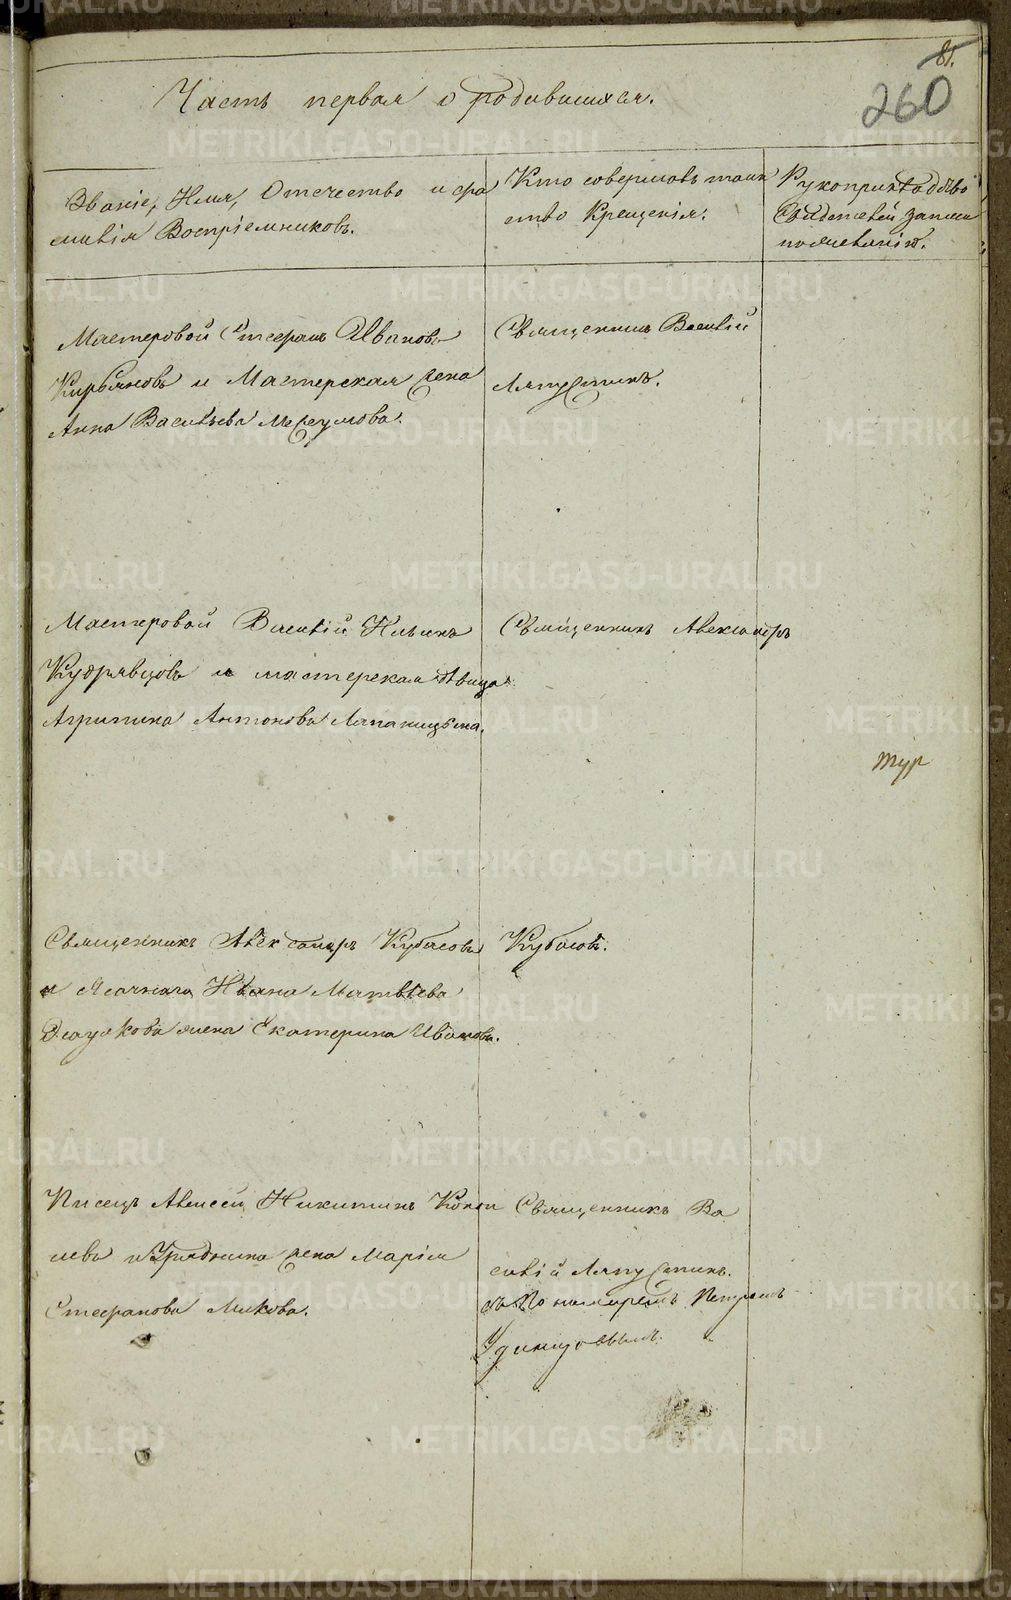 81.
260
Часть первая о родившихся.
Званіе, Имя, Отечество и фа
миліи Воспріемниковъ.
Кто совершалъ таин
ство Крещенія.
Рукоприкладство
Свидетелей записи
по желанію.
Мастеровой Стефанъ Ивановъ
Кирьяновъ и Мастерская жена
Анна Васильева
Священникъ Василій
Ляпустинъ.
Мастеровой Василій Ильинъ
Кудрявцовъ и мастерская девица
Агрипина Антонова Лапаницына.
Священникъ Александръ
тур
Священникъ Александръ Кубасовъ
и Ивана Матвѣева
жена Екатерина Иванова.
Кубасовъ.
Писецъ Алексей Никитинъ Копы
ловъ и Урядника жена Марія
Стефанова
Священникъ Ва
силій Ляпустинъ.
съ Пономаремъ Петромъ
Удинцовымъ.
METRIKI.GASO-URAL.RU